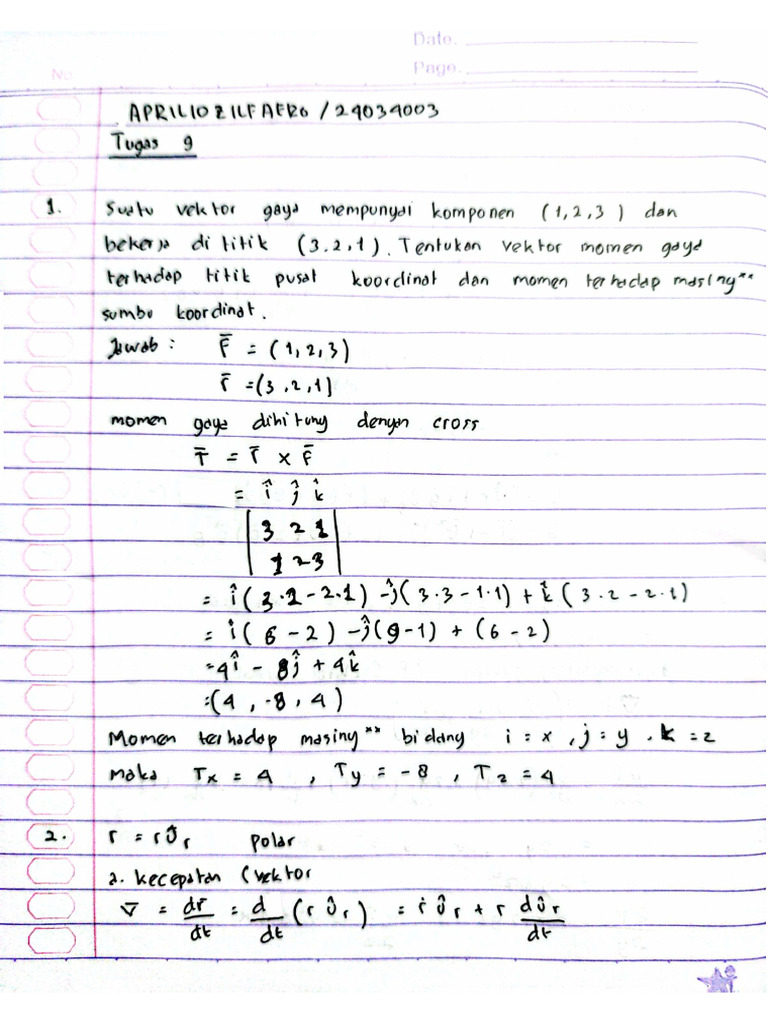 Date.
No
Page.
APRILIO ZILFAFRO / 24034003
Tugas 9
1. Suatu vektor gaya mempunyai komponen (1,2,3) dan
bekerja di titik (3.2,1). Tentukan vektor momen gaya
terhadap titik pusat koordinat dan momen terhadap masing**
sumbu koordinat.
Jawab : F̄ = (1,2,3)
r̄ =(3,2,1]
momen gaya dihitung dengan cross
T̄ = r̄ x F̄
= î ĵ k̂
| 3 2 1 |
| 1 2 3 |
= î(3·2-2·1) -ĵ(3·3-1·1) + k̂(3·2-2·1)
= î(6-2) -ĵ(9-1) + (6-2)
=4î - 8ĵ + 4k̂
=(4,-8,4)
Momen terhadap masing** bidang i = x , j = y , k = z
maka Tx = 4 , Ty = -8 , Tz = 4
2. r = rÛr polar
a. kecepatan (vektor
v̄ = dr̄/dt = d/dt (r Ûr) = ṙ Ûr + r dÛr/dt